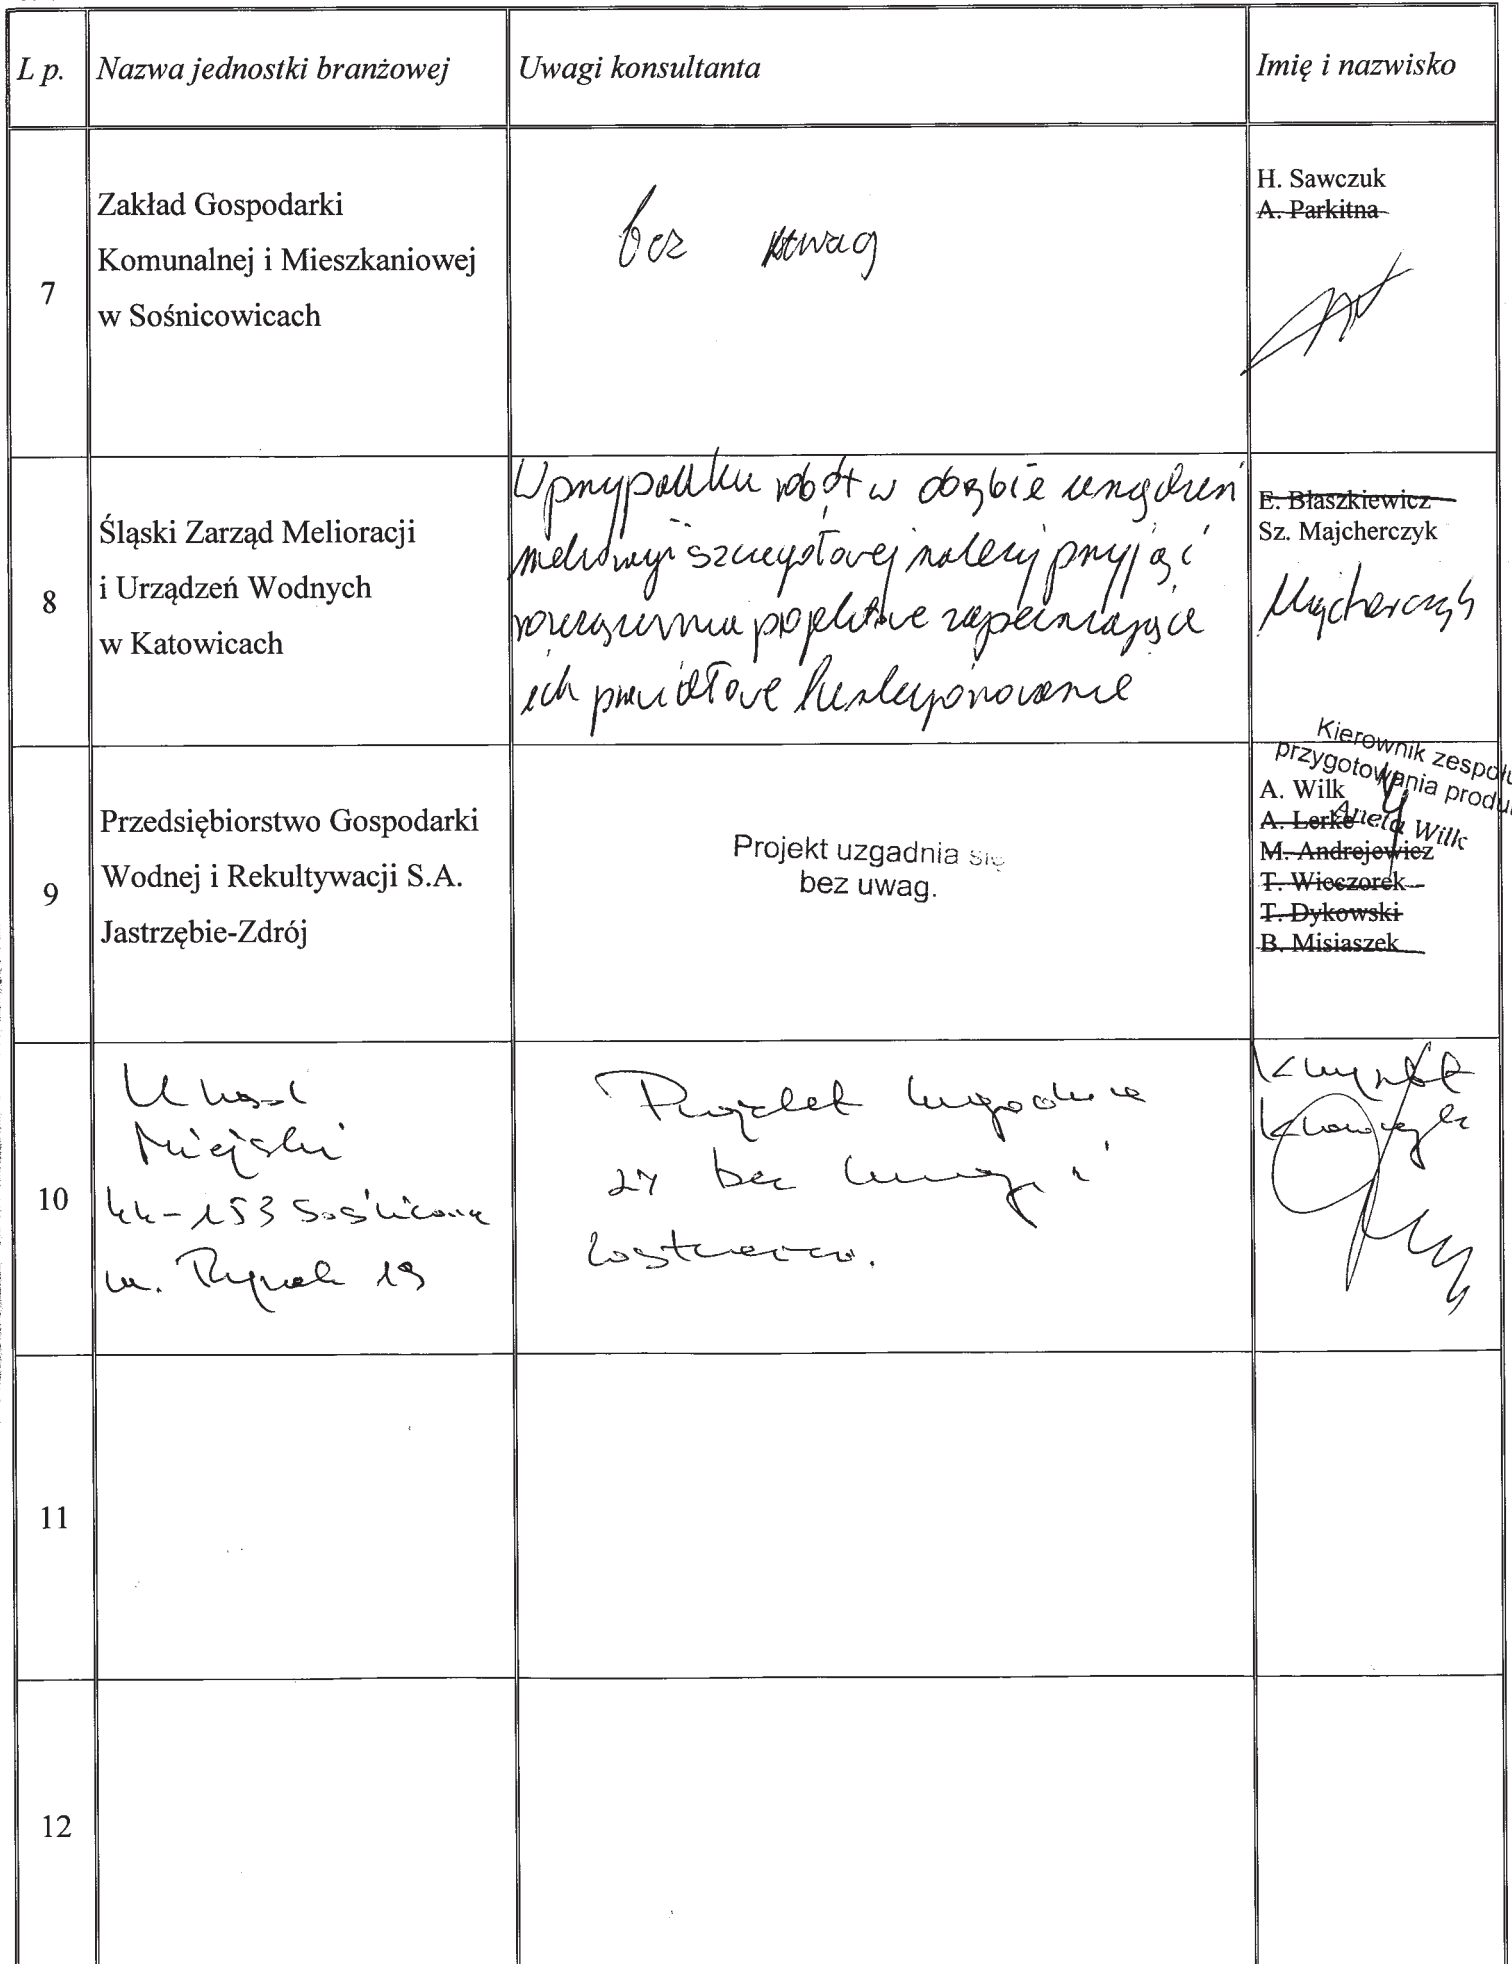 L p.
Nazwa jednostki branżowej
Uwagi konsultanta
Imię i nazwisko
7
Zakład Gospodarki
Komunalnej i Mieszkaniowej
w Sośnicowicach
bez uwag
H. Sawczuk
A. Parkitna
8
Śląski Zarząd Melioracji
i Urządzeń Wodnych
w Katowicach
W przypadku robót w obrębie urządzeń
melioracji szczegółowej należy przyjąć
rozwiązania projektowe zapewniające
ich prawidłowe funkcjonowanie
E. Błaszkiewicz
Sz. Majcherczyk
Majcherczyk
9
Przedsiębiorstwo Gospodarki
Wodnej i Rekultywacji S.A.
Jastrzębie-Zdrój
Projekt uzgadnia się
bez uwag.
Kierownik zespołu
przygotowania produ
Aneta Wilk
A. Wilk
A. Lerke
M. Andrejewicz
T. Wieczorek
T. Dykowski
B. Misiaszek
10
Urząd
Miejski
44-153 Sośnicowice
ul. Rynek 19
Projekt uzgadnia
się bez uwag i
zastrzeżeń.
Krzysztof
11
12